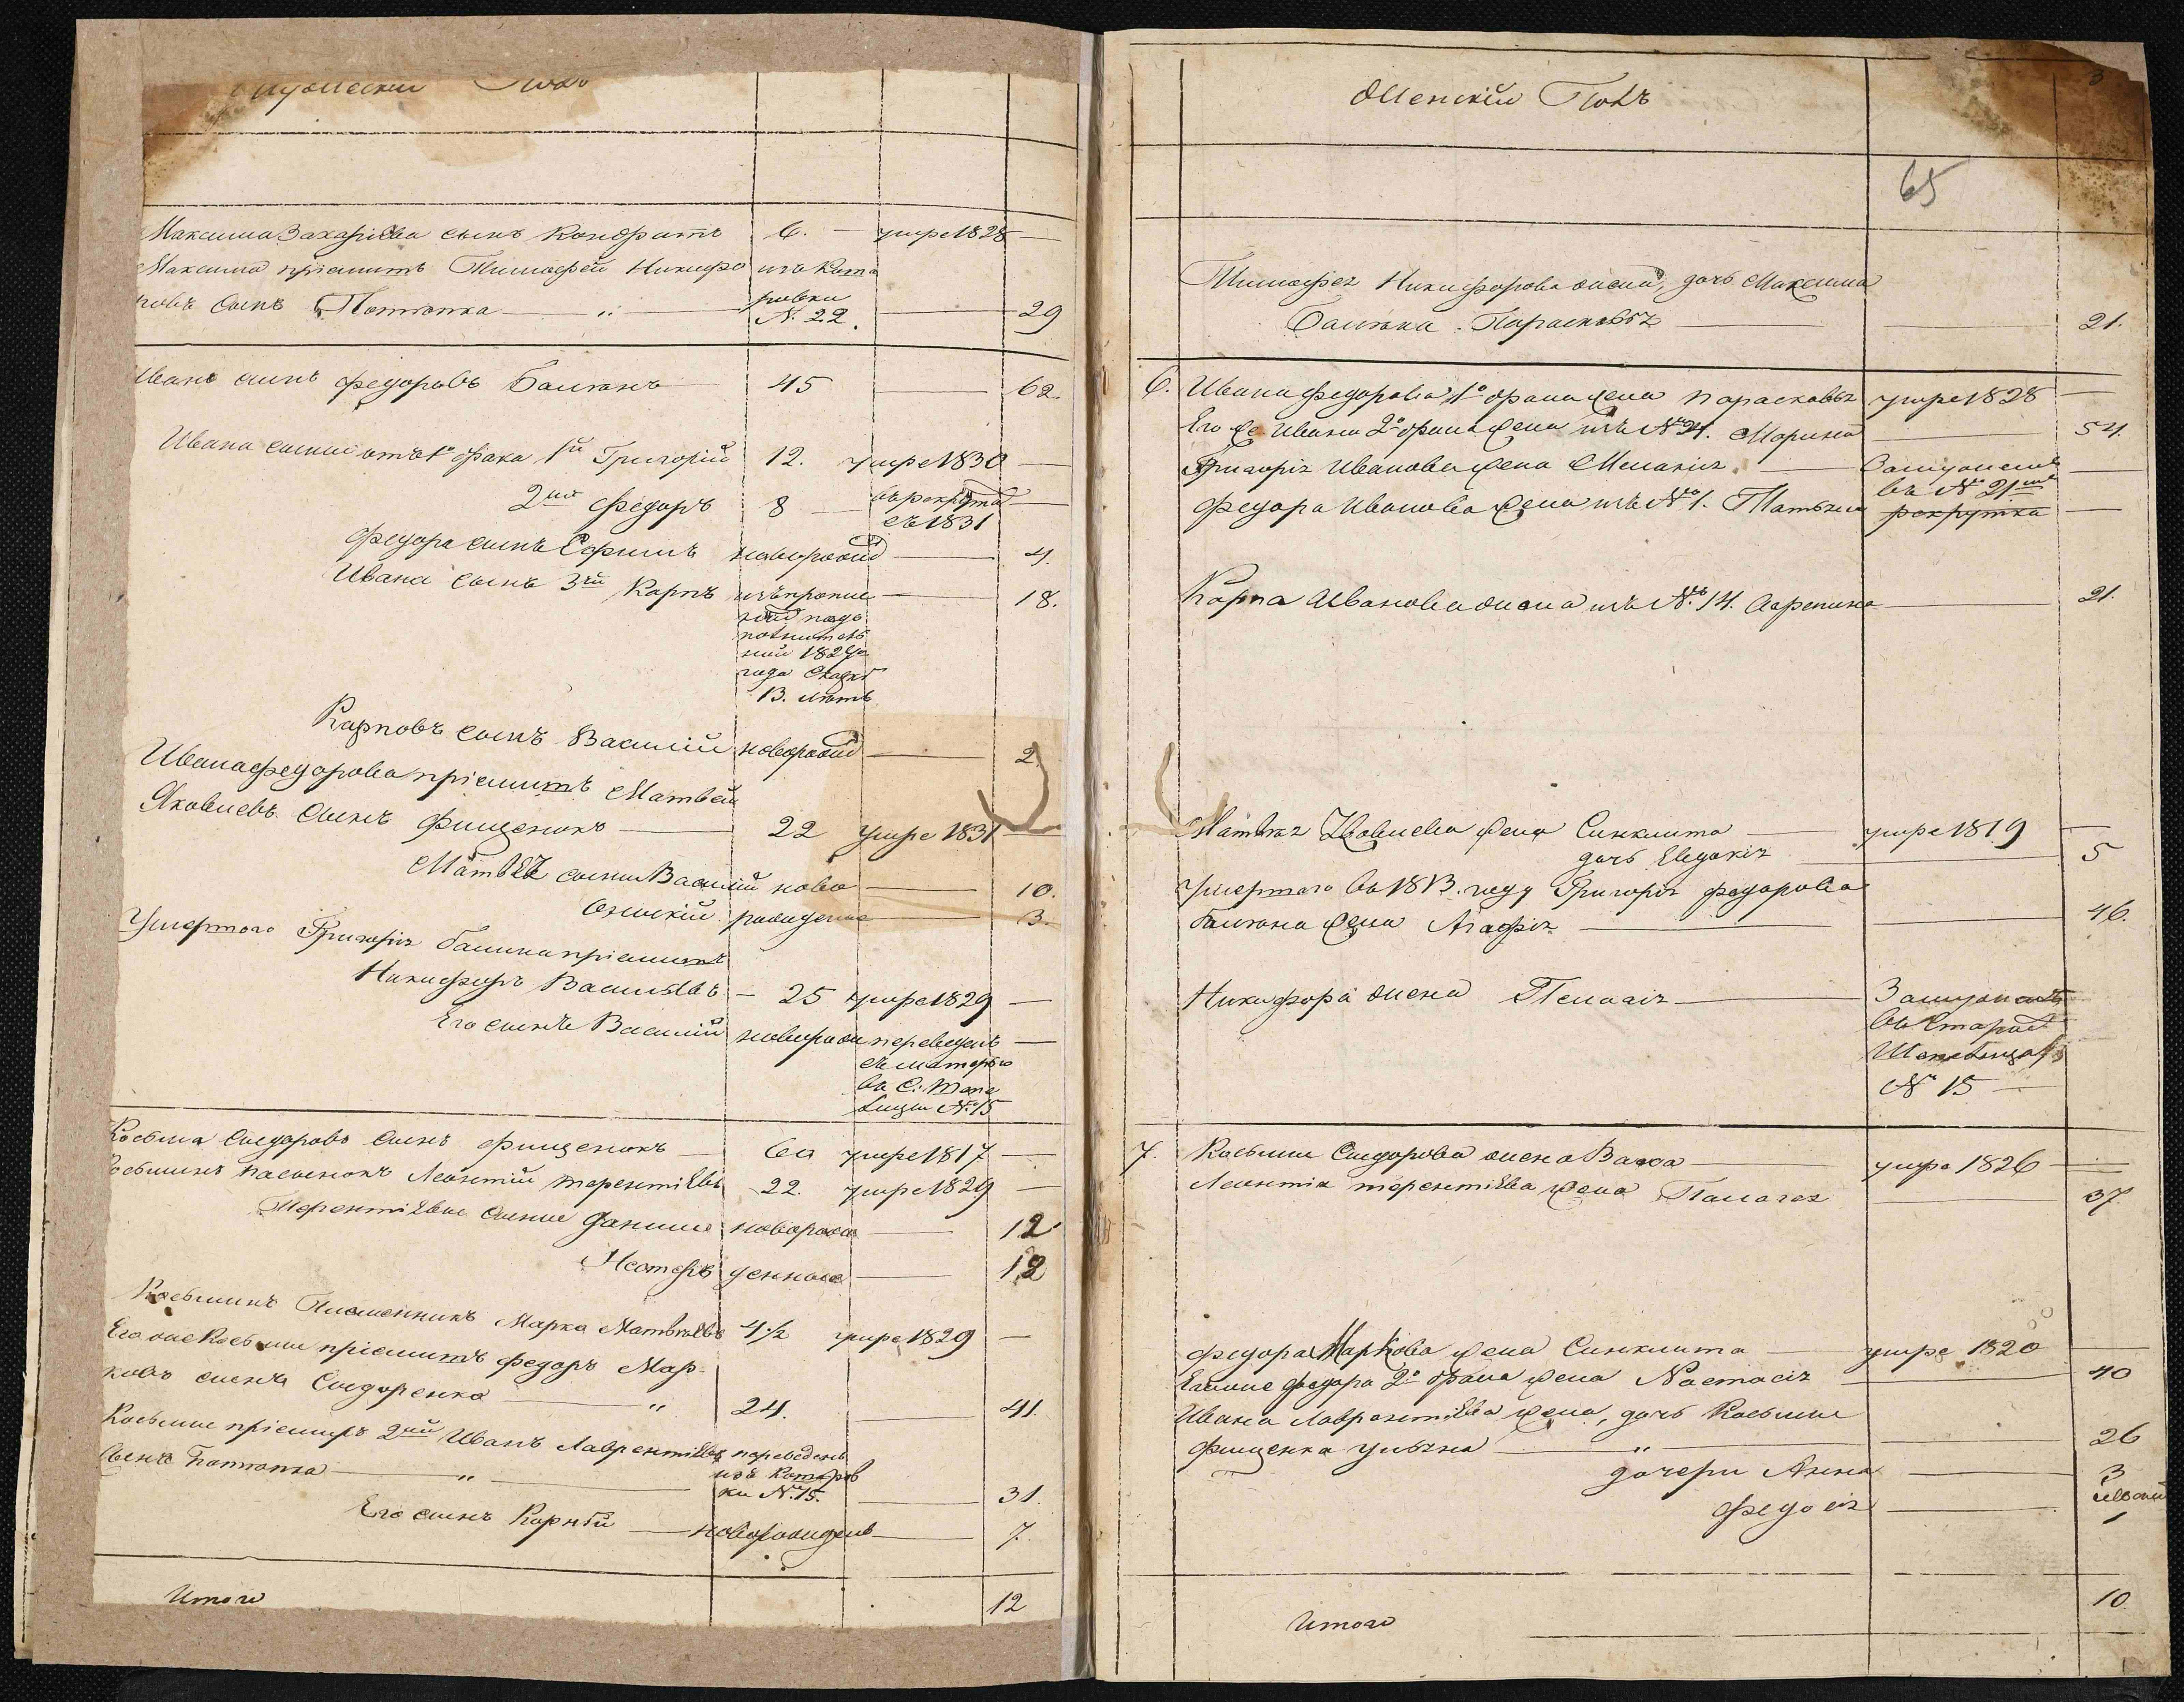 Мужеский Полъ
Максима Захаріева сынъ Кондратъ 6. умре 1828
Максима пріемитъ Тимофей Никифо изъ Кома
ровъ сынъ Потюпка ровки № 22. 29
Иванъ сынъ федоровъ Балюкъ 45 62.
Ивана сынии отъ 1о брака 1й Григорій 12. умре 1830
2ий федоръ 8 въ рекруты
съ 1831
федора сынъ Ефимъ новорожд 4.
Ивана сынъ 3ій Карпъ 18.
1829
года
13. летъ
Карповъ сынъ Василій новорожд 2.
Ивана федорова пріемитъ Матвей
Яковлевъ сынъ фищенокъ 22 умре 1831
Матвея сыни Василій ново 10.
рожденые 3.
Умершого Григорія Балюка пріемитъ
Никифоръ Васильевъ 25 умре 1829
Его сынъ Василій новорожд переведенъ
съ матерью
№ 15
Косьма Сидоровъ сынъ фищенокъ 60 умре 1817
Косьминъ пасынокъ Леонтій терентіевъ 22. умре 1829
Терентіевы сыние Данило новорож 12
Нестеръ денные 12
Косьминъ Племенникъ Марко Матвеевъ 4 1/2 умре 1829
Его же Косьмы пріемитъ федоръ Мар
ковъ сынъ Сидоренко " 24. 41.
Косьмы пріемитъ 2ий Иванъ Лаврентіевъ переведенъ
сынъ Потюпка " изъ Комаров
ки № 15. 31.
Его сынъ Корній новорожденъ 7.
Итого 12
Женскій Полъ
3
65
Тимофея Никифорова жена, дочь Максима
Балюка Парасковья 21.
6. Ивана федорова 1о брака жена Парасковья умре 1828
Его же Ивана 2о брака жена изъ № 24. Марина 54.
Григорія Иванова жена Меланія Замужемъ
въ № 21
федора Иванова жена изъ № 1. Татьяна рекрутка
Карпа Иванова жена изъ № 14. Агрепина 21.
Матвея Яковлева жена Синклита умре 1819
дочь Евдокія 5
Умершого въ 1813. году Григорія федорова
Балюка жена Агафія 46.
Никифора жена Пелагія Замужемъ
въ Старой
№ 15
7. Косьмы Сидорова жена Васса умре 1826
Леонтія терентіева жена Палагея 37
федора Маркова жена Синклита умре 1820
Егоже федора 2о брака жена Настасія 40
Ивана Лаврентіева жена, дочь Косьмы
фищенка ульяна " 26
дочери Анна 3
федосія 1
Итого 10